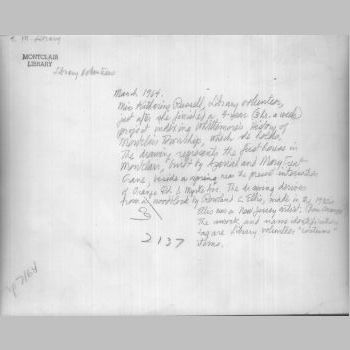 M- Library
MONTCLAIR
LIBRARY
Library Volunteers
March 1964.
Miss Katherine Russell, Library volunteer,
just after she finished a year (3 hrs. a week)
project indexing Whittemore's History of
Montclair Township, which she holds.
The drawing represents the first house in
Montclair, built by Azariah and Mary Treat
Crane, beside a spring near the present intersection
of Orange Rd. & Myrtle Ave. The drawing derives
from a woodblock by Rowland C. Ellis, made in the 1930s
Ellis was a New Jersey artist.
The smock and name identification
tag are Library volunteer "costume"
items.
2137